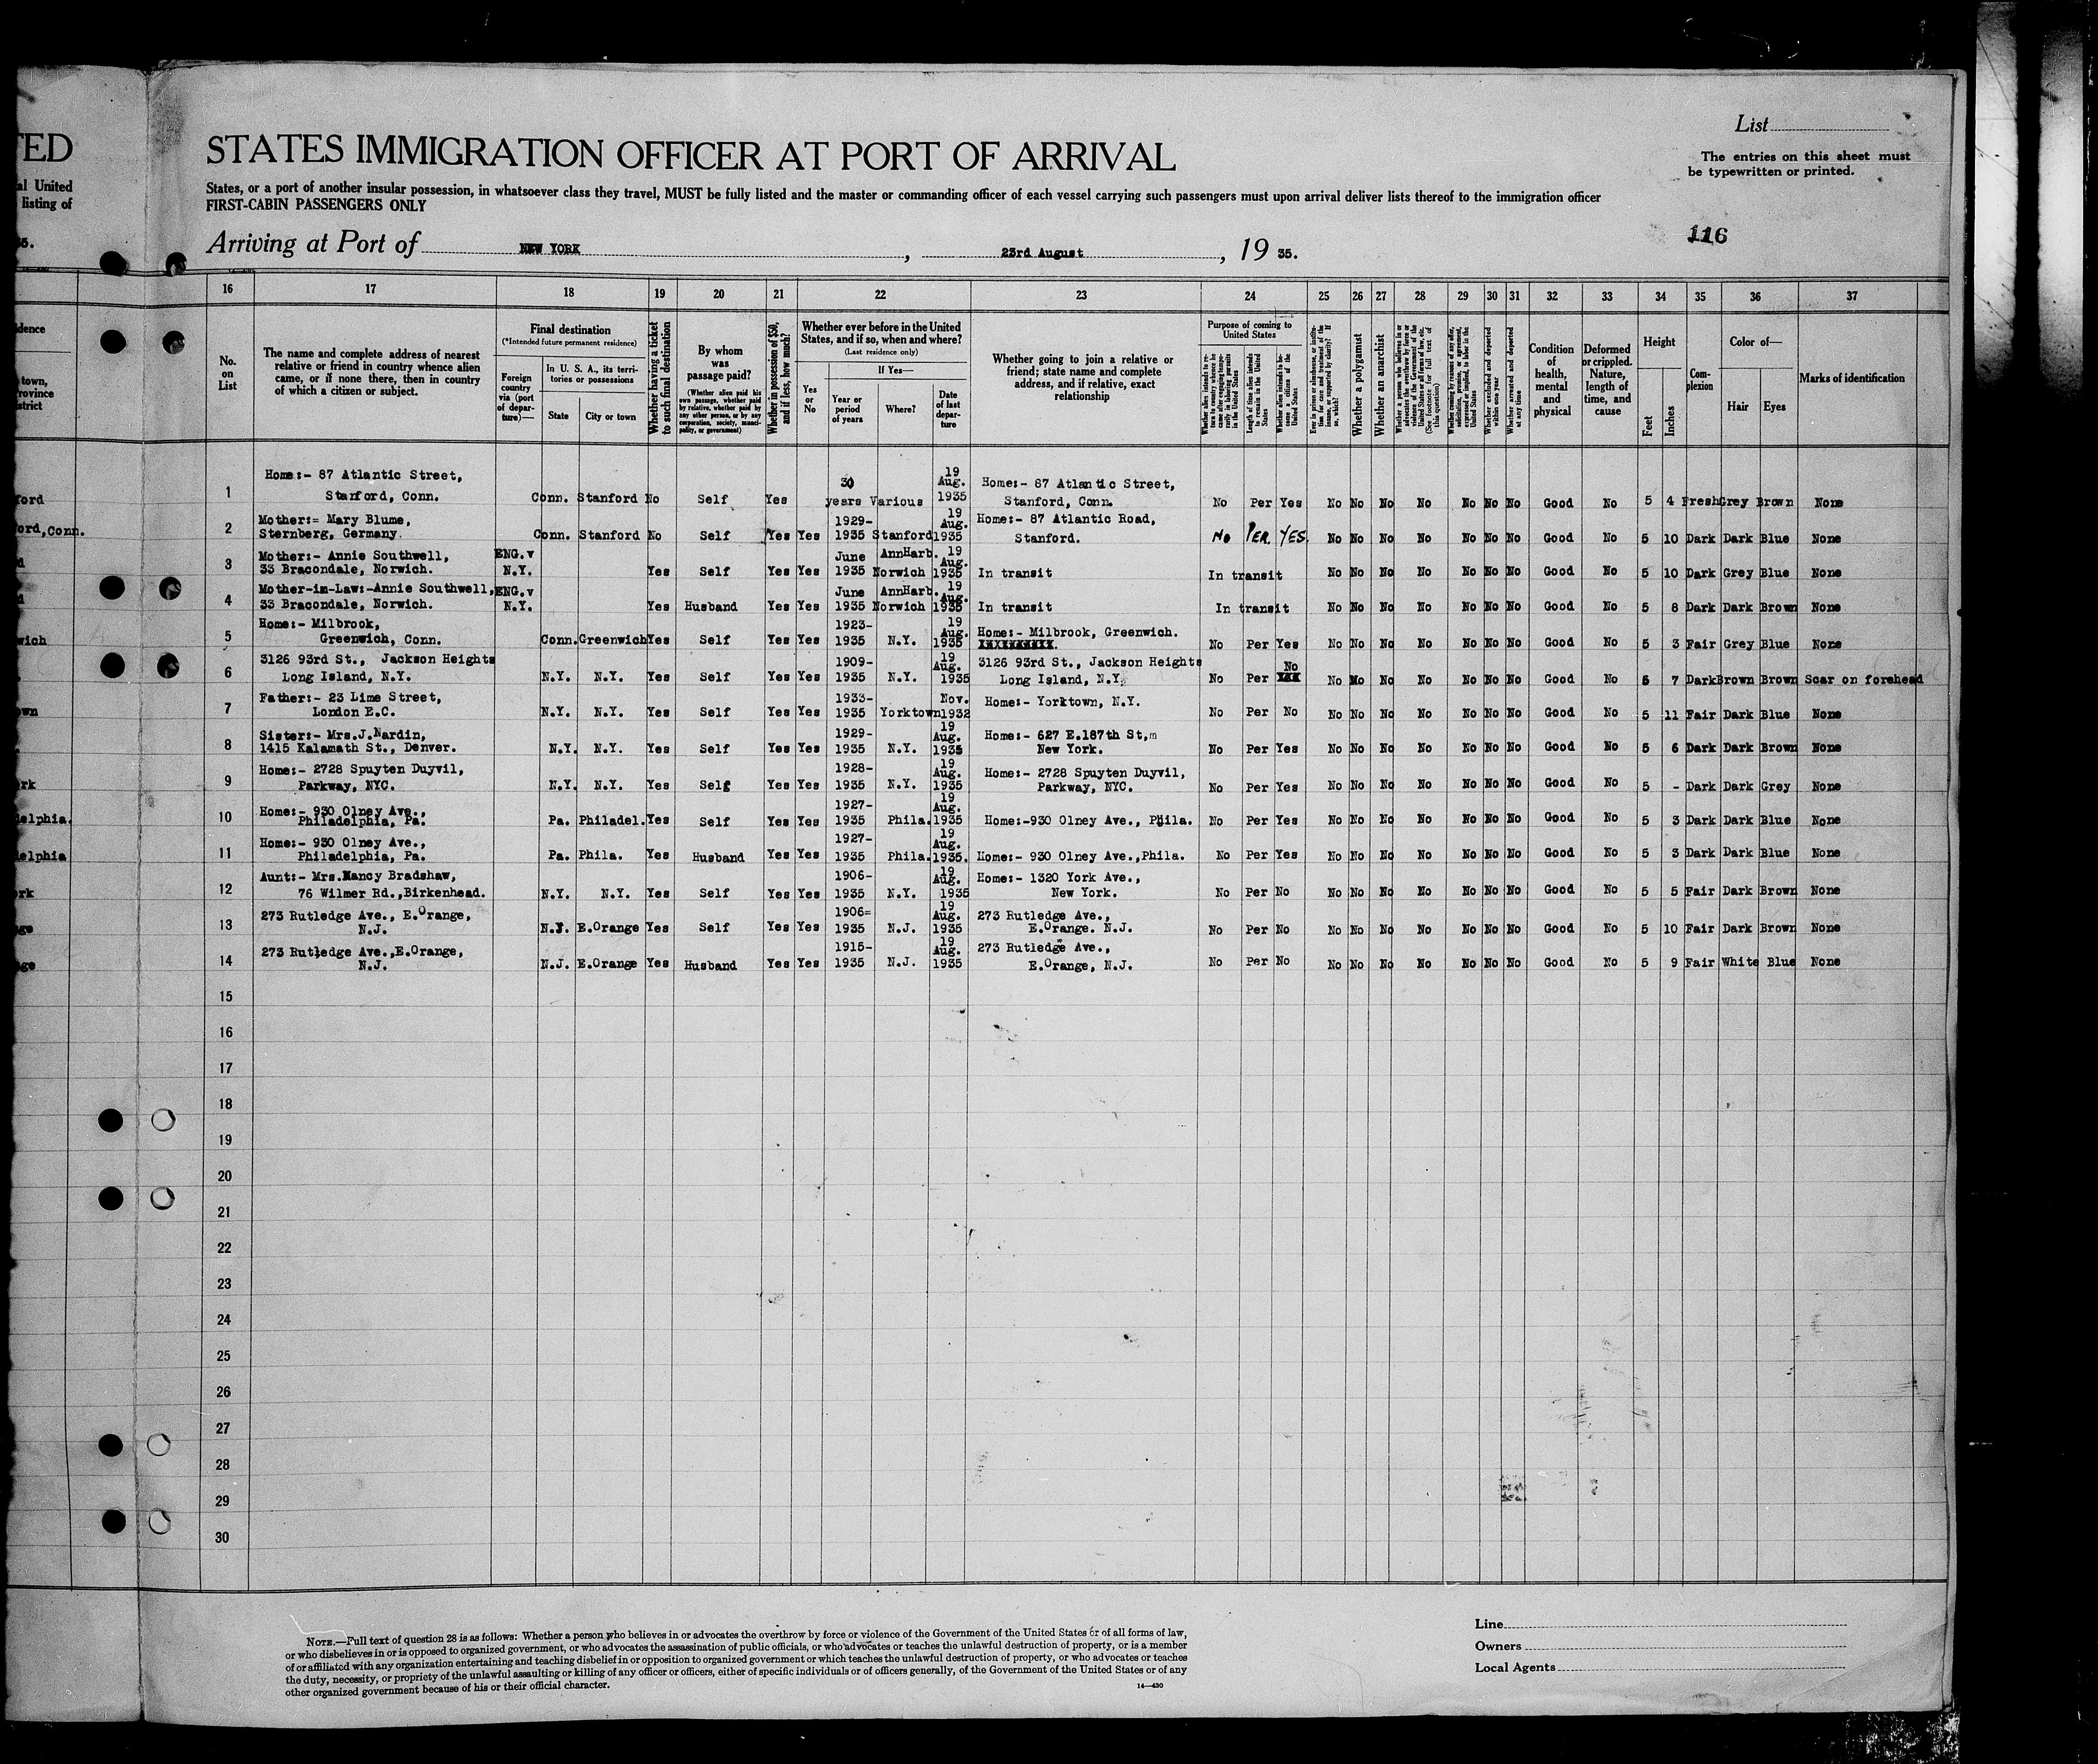 TED
al United
listing of
35.
dence
town,
rovince
strict
ford
ford,Conn.
d
d
wich
own
rk
delphia.
delphia
rk
ge
ge
List
STATES IMMIGRATION OFFICER AT PORT OF ARRIVAL
The entries on this sheet must
be typewritten or printed.
States, or a port of another insular possession, in whatsoever class they travel, MUST be fully listed and the master or commanding officer of each vessel carrying such passengers must upon arrival deliver lists thereof to the immigration officer
FIRST-CABIN PASSENGERS ONLY
116
Arriving at Port of NEW YORK , 23rd August , 19 35.
16 17 18 19 20 21 22 23 24 25 26 27 28 29 30 31 32 33 34 35 36 37
No. on List
The name and complete address of nearest relative or friend in country whence alien came, or if none there, then in country of which a citizen or subject.
Final destination
(*Intended future permanent residence)
Foreign country via (port of departure)—
In U. S. A., its territories or possessions
State
City or town
Whether having a ticket to such final destination
By whom was passage paid?
(Whether alien paid his own passage, whether paid by relative, whether paid by any other person, or by any corporation, society, municipality, or government)
Whether in possession of $50, and if less, how much?
Whether ever before in the United States, and if so, when and where?
(Last residence only)
Yes or No
If Yes—
Year or period of years
Where?
Date of last departure
Whether going to join a relative or friend; state name and complete address, and if relative, exact relationship
Purpose of coming to United States
Length of time alien intends to remain in the United States
Whether a polygamist
Whether an anarchist
Whether arrested and deported at any time
Condition of health, mental and physical
Deformed or crippled. Nature, length of time, and cause
Height
Feet
Inches
Complexion
Color of—
Hair
Eyes
Marks of identification
1 Home:- 87 Atlantic Street, Stanford, Conn. Conn. Stanford No Self Yes 30 years Various 19 Aug. 1935 Home:- 87 Atlantic Street, Stanford, Conn. No Per Yes No No No No No No No Good No 5 4 Fresh Grey Brown None
2 Mother:= Mary Blume, Sternberg, Germany. Conn. Stanford No Self Yes Yes 1929-1935 Stanford 19 Aug. 1935 Home:- 87 Atlantic Road, Stanford. No PER. YES. No No No No No No No Good No 5 10 Dark Dark Blue None
3 Mother:- Annie Southwell, 33 Bracondale, Norwich. ENG.v N.Y. Yes Self Yes Yes June 1935 AnnHarb. Norwich 19 Aug. 1935 In transit In transit No No No No No No No Good No 5 10 Dark Grey Blue None
4 Mother-im-Law:-Annie Southwell, 33 Bracondale, Norwich. ENG.v N.Y. Yes Husband Yes Yes June 1935 AnnHarb. Norwich 19 Aug. 1935 In transit In transit No No No No No No No Good No 5 8 Dark Dark Brown None
5 Home:- Milbrook, Greenwich, Conn. Conn. Greenwich Yes Self Yes Yes 1923-1935 N.Y. 19 Aug. 1935 Home:- Milbrook, Greenwich. No Per Yes No No No No No No No Good No 5 3 Fair Grey Blue None
6 3126 93rd St., Jackson Heights Long Island, N.Y. N.Y. N.Y. Yes Self Yes Yes 1909-1935 N.Y. 19 Aug. 1935 3126 93rd St., Jackson Heights Long Island, N.Y. No Per No No Mo No No No No No Good No 5 7 Dark Brown Brown Scar on forehead
7 Father:- 23 Lime Street, London E.C. N.Y. N.Y. Yes Self Yes Yes 1933-1935 Yorktown Nov. 1932 Home:- Yorktown, N.Y. No Per No No No No No No No No Good No 5 11 Fair Dark Blue None
8 Sister:- Mrs.J.Nardin, 1415 Kalamath St., Denver. N.Y. N.Y. Yes Self Yes Yes 1929-1935 N.Y. 19 Aug. 1935 Home:- 627 E.187th St,m New York. No Per Yes No No No No No No No Good No 5 6 Dark Dark Brown None
9 Home:- 2728 Spuyten Duyvil, Parkway, NYC. N.Y. N.Y. Yes Self Yes Yes 1928-1935 N.Y. 19 Aug. 1935 Home:- 2728 Spuyten Duyvil, Parkway, NYC. No Per Yes No No No No No No No Good No 5 - Dark Dark Grey None
10 Home:- 930 Olney Ave., Philadelphia, Pa. Pa. Philadel. Yes Self Yes Yes 1927-1935 Phila. 19 Aug. 1935 Home:-930 Olney Ave., Phila. No Per Yes No No No No No No No Good No 5 3 Dark Dark Blue None
11 Home:- 930 Olney Ave., Philadelphia, Pa. Pa. Phila. Yes Husband Yes Yes 1927-1935 Phila. 19 Aug. 1935. Home:- 930 Olney Ave.,Phila. No Per Yes No No No No No No No Good No 5 3 Dark Dark Blue None
12 Aunt:- Mrs.Nancy Bradshaw, 76 Wilmer Rd.,Birkenhead. N.Y. N.Y. Yes Self Yes Yes 1906-1935 N.Y. 19 Aug. 1935 Home:- 1320 York Ave., New York. No Per No No No No No No No No Good No 5 5 Fair Dark Brown None
13 273 Rutledge Ave., E.Orange, N.J. N.J. E.Orange Yes Self Yes Yes 1906=1935 N.J. 19 Aug. 1935 273 Rutledge Ave., E.Orange. N.J. No Per No No No No No No No No Good No 5 10 Fair Dark Brown None
14 273 Rutledge Ave.,E.Orange, N.J. N.J. E.Orange Yes Husband Yes Yes 1915-1935 N.J. 19 Aug. 1935 273 Rutledge Ave., E.Orange, N.J. No Per No No No No No No No No Good No 5 9 Fair White Blue None
15
16
17
18
19
20
21
22
23
24
25
26
27
28
29
30
NOTE.—Full text of question 28 is as follows: Whether a person who believes in or advocates the overthrow by force or violence of the Government of the United States or of all forms of law,
or who disbelieves in or is opposed to organized government, or who advocates the assassination of public officials, or who advocates or teaches the unlawful destruction of property, or is a member
of or affiliated with any organization entertaining and teaching disbelief in or opposition to organized government or which teaches the unlawful destruction of property, or who advocates or teaches
the duty, necessity, or propriety of the unlawful assaulting or killing of any officer or officers, either of specific individuals or of officers generally, of the Government of the United States or of any
other organized government because of his or their official character.
14—430
Line
Owners
Local Agents